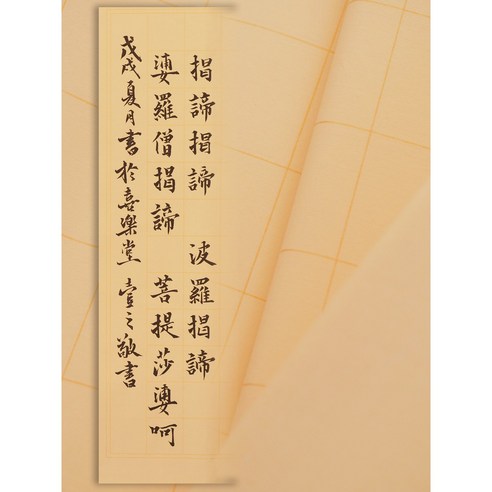 揭諦揭諦 波羅揭諦
婆羅僧揭諦 菩提莎婆呵
戊戌夏月書於喜樂堂 壹之敬書